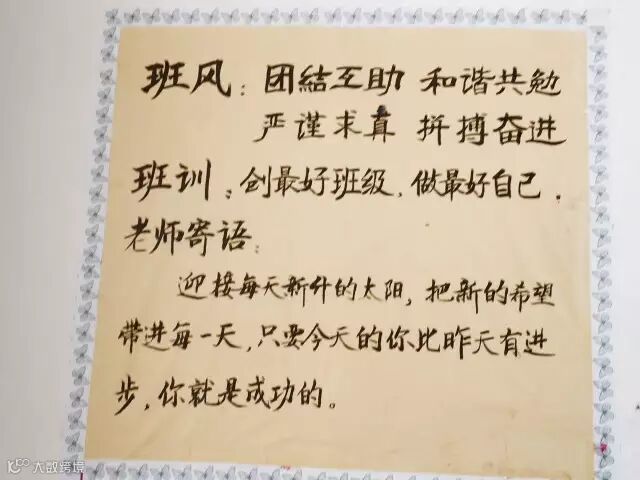 班风：团結互助 和谐共勉
严谨求真 拼搏奋进
班训：创最好班级、做最好自己.
老师寄语：
迎接每天新升的太阳，把新的希望
带进每一天，只要今天的你比昨天有进
步，你就是成功的。
大数跨境